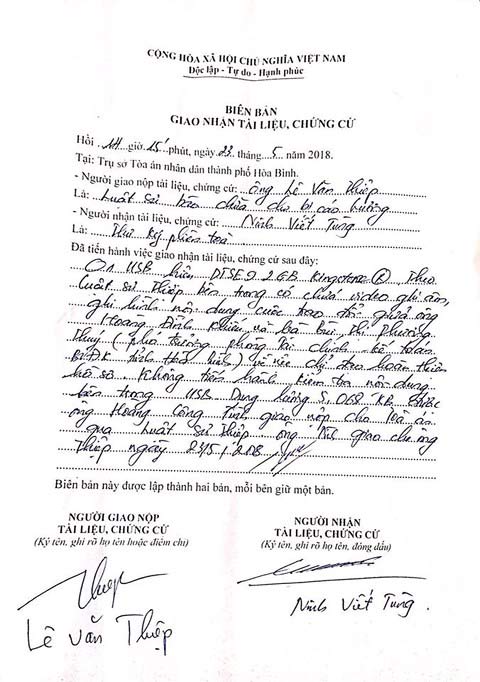 CỘNG HÒA XÃ HỘI CHỦ NGHĨA VIỆT NAM
Độc lập - Tự do - Hạnh phúc
BIÊN BẢN
GIAO NHẬN TÀI LIỆU, CHỨNG CỨ
Hồi 14 giờ 15 phút, ngày 23 tháng 5 năm 2018.
Tại: Trụ sở Tòa án nhân dân thành phố Hòa Bình.
- Người giao nộp tài liệu, chứng cứ: Ông Lê Văn Thiệp
Là: Luật sư bào chữa cho bị cáo Lương
- Người nhận tài liệu, chứng cứ: Ninh Viết Tùng
Là: Thư ký phiên toà
Đã tiến hành việc giao nhận tài liệu, chứng cứ sau đây:
01 USB hiệu DTSE9 2GB Kingstone ® Theo
luật sư Thiệp bên trong có chứa video ghi âm,
ghi hình nội dung cuộc trao đổi giữa ông
Hoàng Đình Khiếu và bà Bùi Thị Phương
Thuý (phó trưởng phòng tài chính kế toán
BVĐK tỉnh Hoà Bình) về việc chỉ đạo hoàn thiện
hồ sơ. Không tiến hành kiểm tra nội dung
bên trong USB. Dung lượng 5.068 KB. Được
ông Hoàng Công Tình giao nộp cho Toà án
qua luật sư Thiệp ông giao cho ông
Thiệp ngày
Biên bản này được lập thành hai bản, mỗi bên giữ một bản.
NGƯỜI GIAO NỘP
TÀI LIỆU, CHỨNG CỨ
(Ký tên, ghi rõ họ tên hoặc điểm chỉ)
NGƯỜI NHẬN
TÀI LIỆU, CHỨNG CỨ
(Ký tên, ghi rõ họ tên, đóng dấu)
Thiệp
Lê Văn Thiệp
Ninh Viết Tùng.